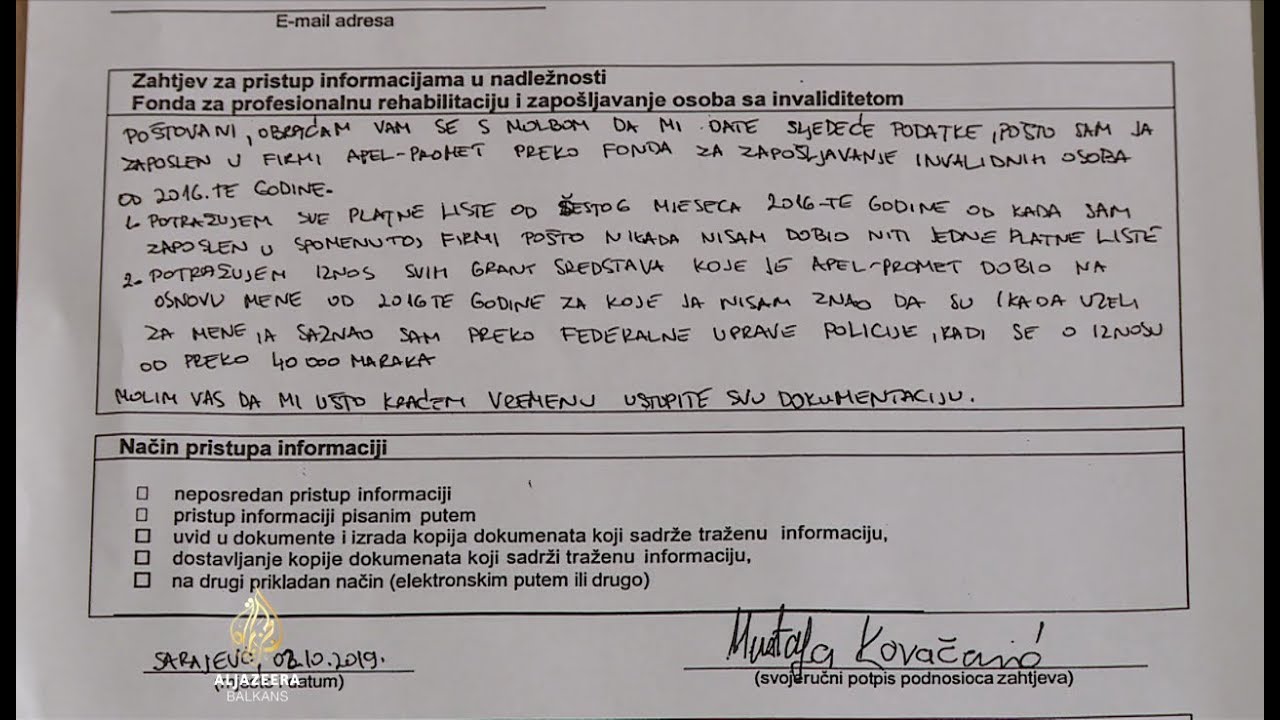 E-mail adresa
Zahtjev za pristup informacijama u nadležnosti
Fonda za profesionalnu rehabilitaciju i zapošljavanje osoba sa invaliditetom
POŠTOVANI, OBRAĆAM VAM SE S MOLBOM DA MI DATE SLJEDEĆE PODATKE, POŠTO SAM JA
ZAPOSLEN U FIRMI APEL-PROMET PREKO FONDA ZA ZAPOŠLJAVANJE INVALIDNIH OSOBA
OD 2016.TE GODINE.
1. POTRAŽUJEM SVE PLATNE LISTE OD ŠESTOG MJESECA 2016-TE GODINE OD KADA SAM
ZAPOSLEN U SPOMENUTOJ FIRMI POŠTO NIKADA NISAM DOBIO NITI JEDNE PLATNE LISTE
2. POTRAŽUJEM IZNOS SVIH GRANT SREDSTAVA KOJE JE APEL-PROMET DOBIO NA
OSNOVU MENE OD 2016TE GODINE ZA KOJE JA NISAM ZNAO DA SU IKADA UZELI
ZA MENE, JA SAZNAO SAM PREKO FEDERALNE UPRAVE POLICIJE, RADI SE O IZNOSU
OD PREKO 40 000 MARAKA
MOLIM VAS DA MI UŠTO KRAĆEM VREMENU USTUPITE SVU DOKUMENTACIJU.
Način pristupa informaciji
neposredan pristup informaciji
pristup informaciji pisanim putem
uvid u dokumente i izrada kopija dokumenata koji sadrže traženu informaciju,
dostavljanje kopije dokumenata koji sadrži traženu informaciju,
na drugi prikladan način (elektronskim putem ili drugo)
SARAJEVO, 10.2019.
Mustafa Kovačević
(mjesto i datum)
(svojeručni potpis podnosioca zahtjeva)
ALJAZEERA
BALKANS